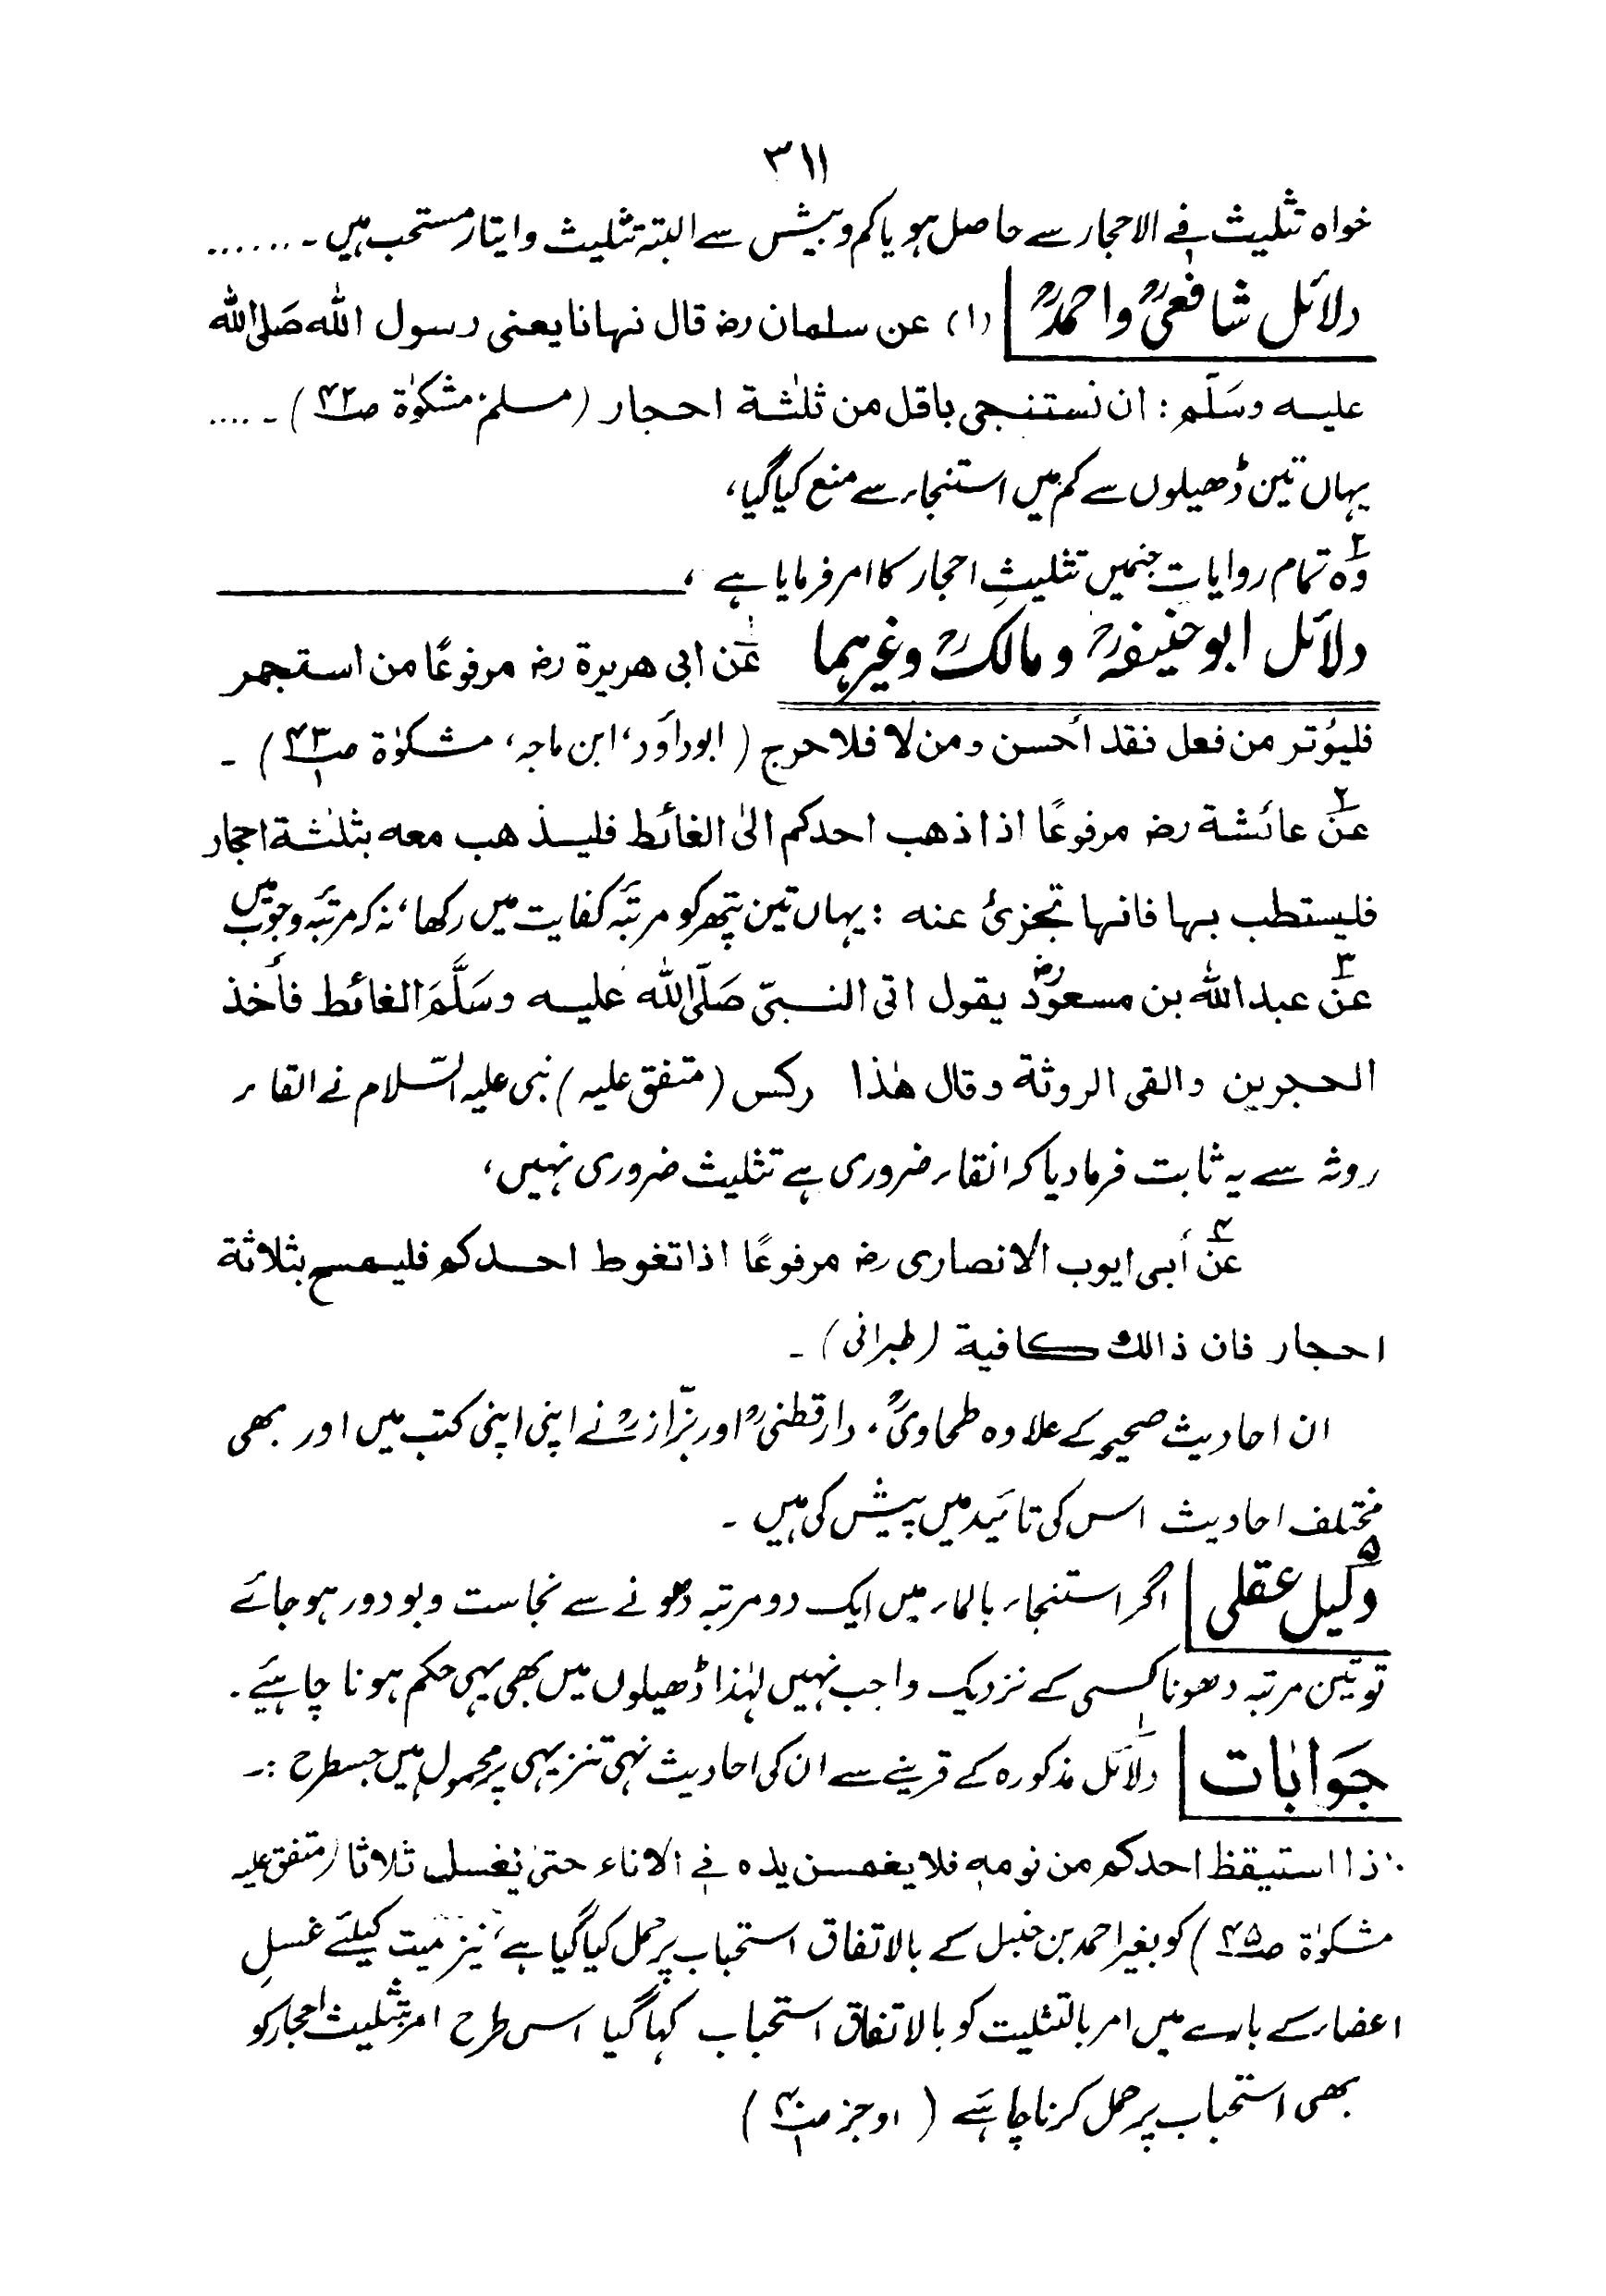 ۳۱۱
خواہ تثلیث فے الاحجار سے حاصل ہو یا کم و بیش سے البتہ تثلیث و ایتار مستحب ہیں ۔ ......
دلائل شافعیؒ واحمدؒ (۱) عن سلمان رض قال نہانا یعنی رسول اللّٰہ صَلی اللّٰہ
علیہ وسَلّم : ان نستنجی باقل من ثلٰثة احجار (مسلم، مشکوٰۃ ص۴۲) ۔ ....
یہاں تین ڈھیلوں سے کم میں استنجاء سے منع کیا گیا،
۲ وہ تمام روایات جنمیں تثلیثِ احجار کا امر فرمایا ہے ،
دلائل ابوحنیفہؒ و مالکؒ وغیرہما ۱ عن ابی ھریرة رض مرفوعًا من استجمر
فلیُوتر من فعل فقد أحسن ومن لا فلا حرج (ابوداؤد، ابن ماجہ، مشکوٰۃ ص۴۳/۱) ۔
۲ عن عائشة رض مرفوعًا اذا ذھب احدکم الیٰ الغائط فلیذھب معه بثلٰثة احجار
فلیستطب بہا فانہا تجزیٔ عنه : یہاں تین پتھر کو مرتبۂ کفایت میں رکھا، نہ کہ مرتبۂ وجوب میں
۳ عن عبداللّٰہ بن مسعودؓ یقول اتی النبیّ صَلّی اللّٰہ علیہ وسَلَّمَ الغائط فأخذ
الحجرین والقی الروثة وقال ھٰذا رکس (متفق علیہ) نبی علیہ السّلام نے القاء
روثہ سے یہ ثابت فرمادیا کہ انقاء ضروری ہے تثلیث ضروری نہیں،
۴ عن أبی ایوب الانصاری رض مرفوعًا اذا تغوط احدکم فلیمسح بثلاثة
احجار فان ذالك کافیة (طبرانی) ۔
ان احادیث صحیحہ کے علاوہ طحاویؒ، دارقطنیؒ اور بزّازؒ نے اپنی اپنی کتب میں اور بھی
مختلف احادیث اس کی تائید میں پیش کی ہیں ۔
۵ دلیل عقلی اگر استنجاء بالماء میں ایک دو مرتبہ دھونے سے نجاست و بو دور ہوجائے
تو تین مرتبہ دھونا کسی کے نزدیک واجب نہیں لہٰذا ڈھیلوں میں بھی یہی حکم ہونا چاہئیے ۔
جَوابات ۱ دلائل مذکورہ کے قرینے سے ان کی احادیث نہی تنزیہی پر محمول ہیں جسطرح :۔
اذا استیقظ احدکم من نومه فلا یغمسن یدہ فے الاناء حتیٰ یغسل ثلاثا (متفق علیہ
مشکوٰۃ ص۴۵) کو بغیر احمد بن حنبل کے بالاتفاق استحباب پر حمل کیا گیا ہے، نیز میت کیلئے غسلِ
اعضاء کے بارے میں امر بالتثلیت کو بالاتفاق استحباب کہا گیا اسی طرح امر تثلیث احجار کو
بھی استحباب پر حمل کرنا چاہئے (اوجز